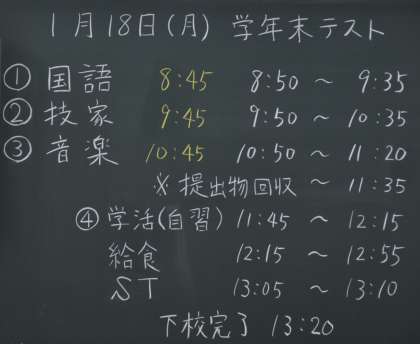 1月18日(月) 学年末テスト
① 国語 8:45 8:50 ~ 9:35
② 技家 9:45 9:50 ~ 10:35
③ 音楽 10:45 10:50 ~ 11:20
※ 提出物回収 ~ 11:35
④ 学活(自習) 11:45 ~ 12:15
給食 12:15 ~ 12:55
ST 13:05 ~ 13:10
下校完了 13:20